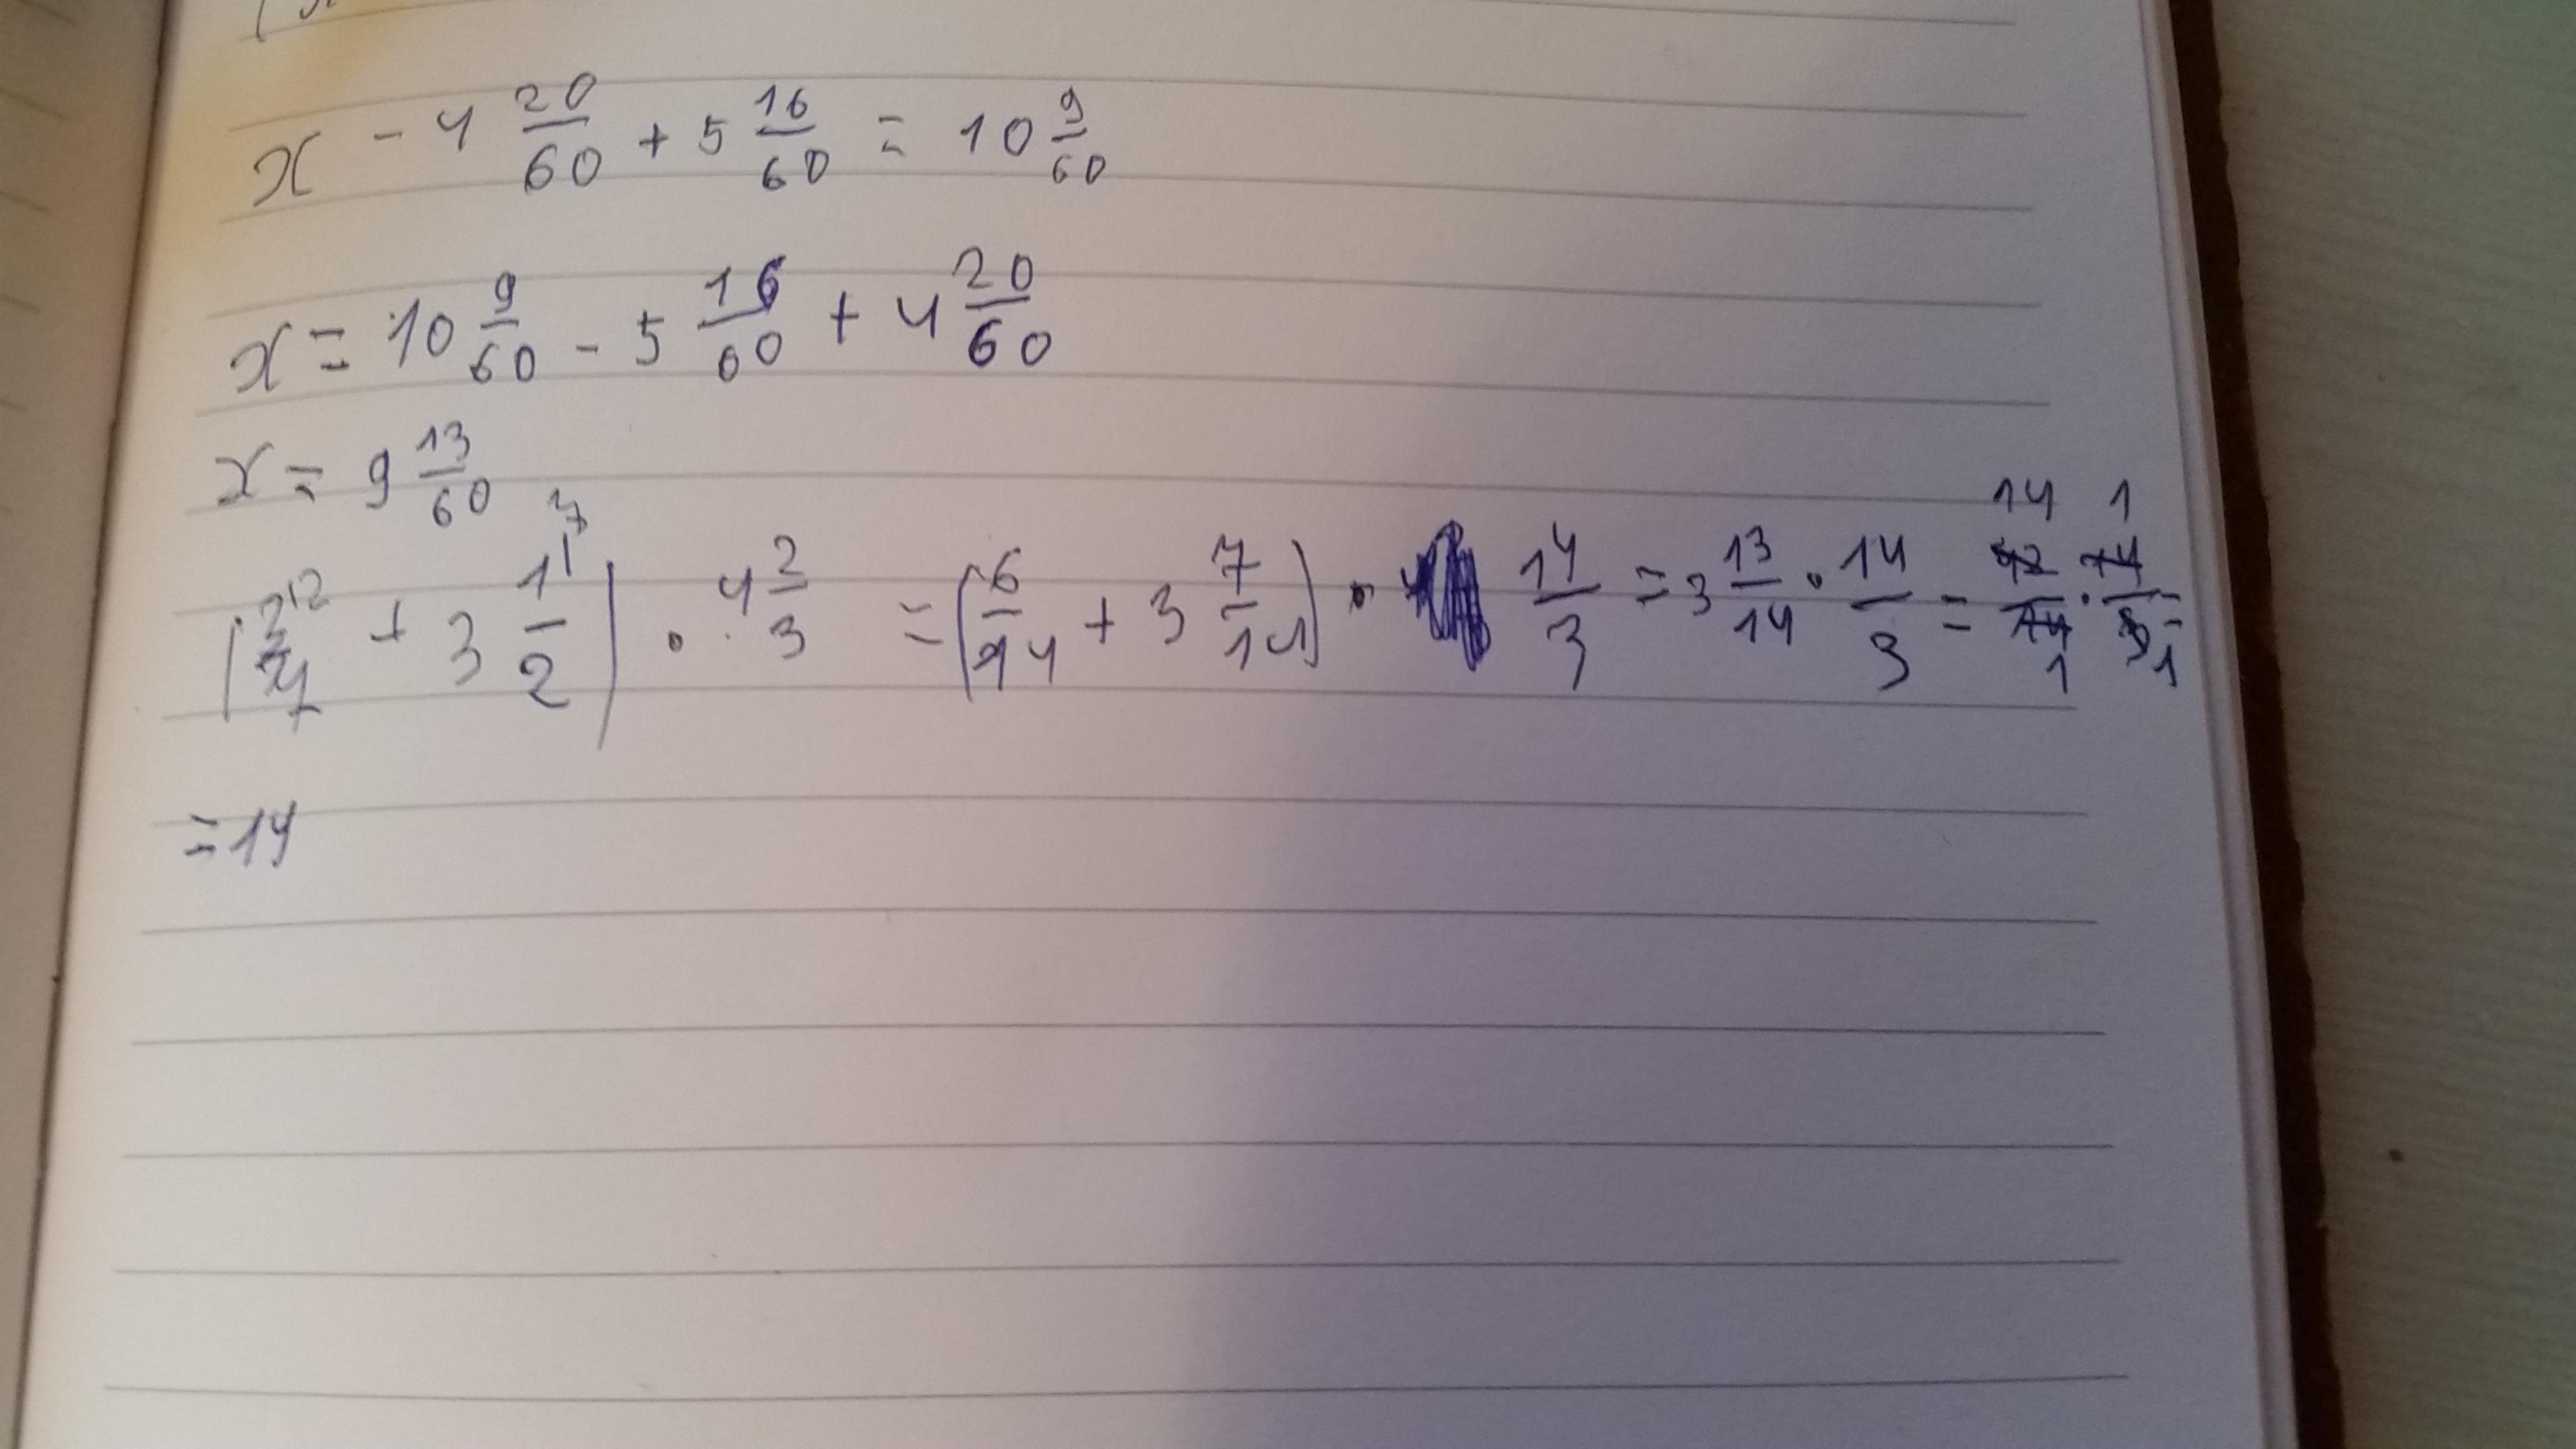 x - 4 20/60 + 5 16/60 = 10 9/60
x = 10 9/60 - 5 16/60 + 4 20/60
x = 9 13/60
( /7 + 3 1/2) · 4 2/3 = (6/14 + 3 7/14) · 14/3 = 3 13/14 · 14/3 = 42/14 · 14/3 =
= 14